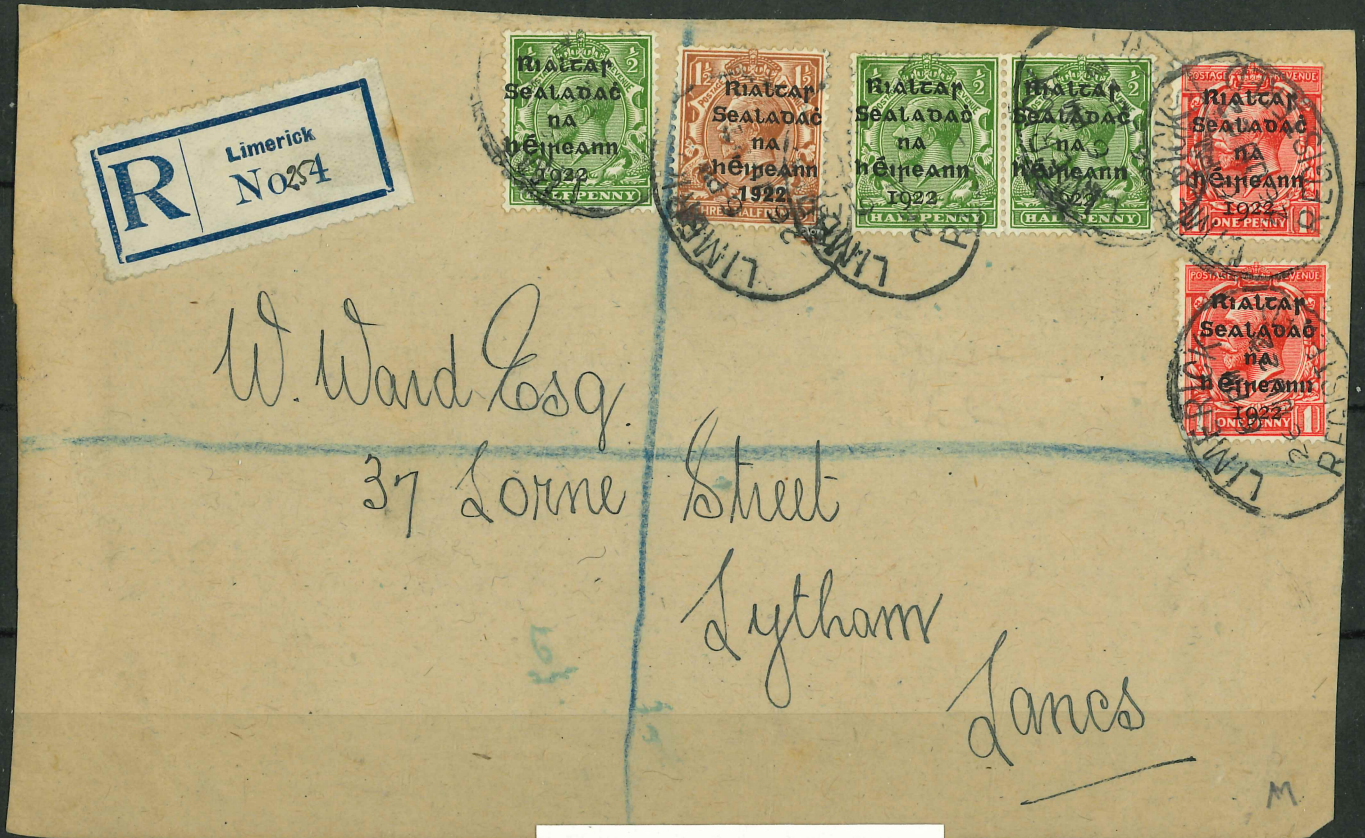 R
Limerick
No 254
1/2
Rialtaſ
Sealadaċ
na
hÉireann
1922
HALFPENNY
1½
Rialtaſ
Sealadaċ
na
hÉireann
1922
THREE HALF
1/2
Rialtaſ
Sealadaċ
na
hÉireann
1922
HALFPENNY
1/2
Rialtaſ
Sealadaċ
na
hÉireann
1922
HALFPENNY
POSTAGE REVENUE
Rialtaſ
Sealadaċ
na
hÉireann
1922
ONE PENNY
POSTAGE REVENUE
Rialtaſ
Sealadaċ
na
hÉireann
1922
ONE PENNY 1
LIMERICK
W. Ward Esq
37 Lorne Street
Lytham
Lancs
M